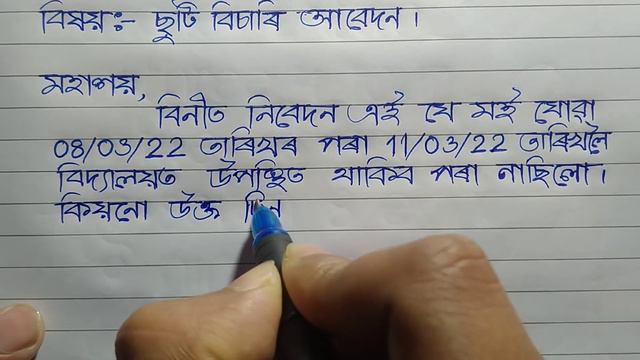 বিষয়ঃ- ছুটি বিচাৰি আবেদন।
মহাশয়,
বিনীত নিবেদন এই যে মই যোৱা
08/03/22 তাৰিখৰ পৰা 11/03/22 তাৰিখলৈ
বিদ্যালয়ত উপস্থিত থাকিব পৰা নাছিলো।
কিয়নো উক্ত